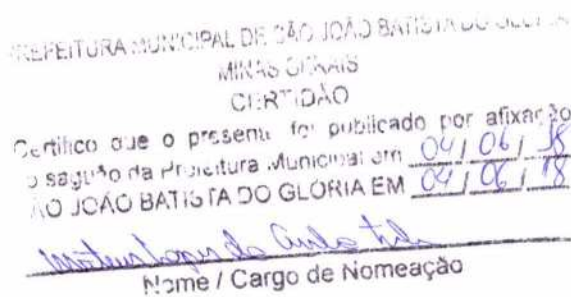 PREFEITURA MUNICIPAL DE SÃO JOÃO BATISTA DO GLÓRIA
MINAS GERAIS
CERTIDÃO
Certifico que o presente foi publicado por afixação
o saguão da Prefeitura Municipal em 04/06/18
ÃO JOÃO BATISTA DO GLÓRIA EM 04/06/18
Nome / Cargo de Nomeação